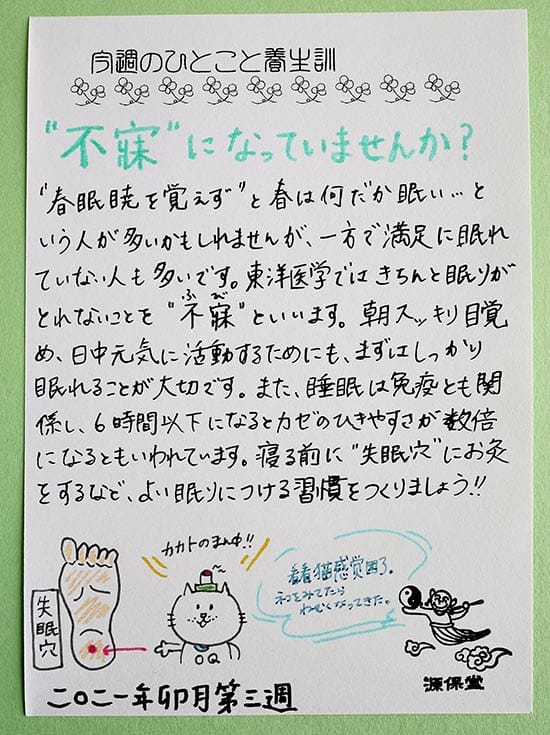 今週のひとこと養生訓
“不寐”になっていませんか？
“春眠暁を覚えず”と春は何だか眠い…と
いう人が多いかもしれませんが、一方で満足に眠れ
ていない人も多いです。東洋医学ではきちんと眠りが
ふび
とれないことを“不寐”といいます。朝スッキリ目覚
め、日中元気に活動するためにも、まずはしっかり
眠れることが大切です。また、睡眠は免疫とも関
係し、6時間以下になるとカゼのひきやすさが数倍
になるともいわれています。寝る前に“失眠穴”にお灸
をするなど、よい眠りにつける習慣をつくりましょう!!
カカトのまん中!!
失眠穴
OQ
看看猫感覚困了。
ネコをみてたら
ねむくなってきた。
二〇二一年卯月第三週
源保堂